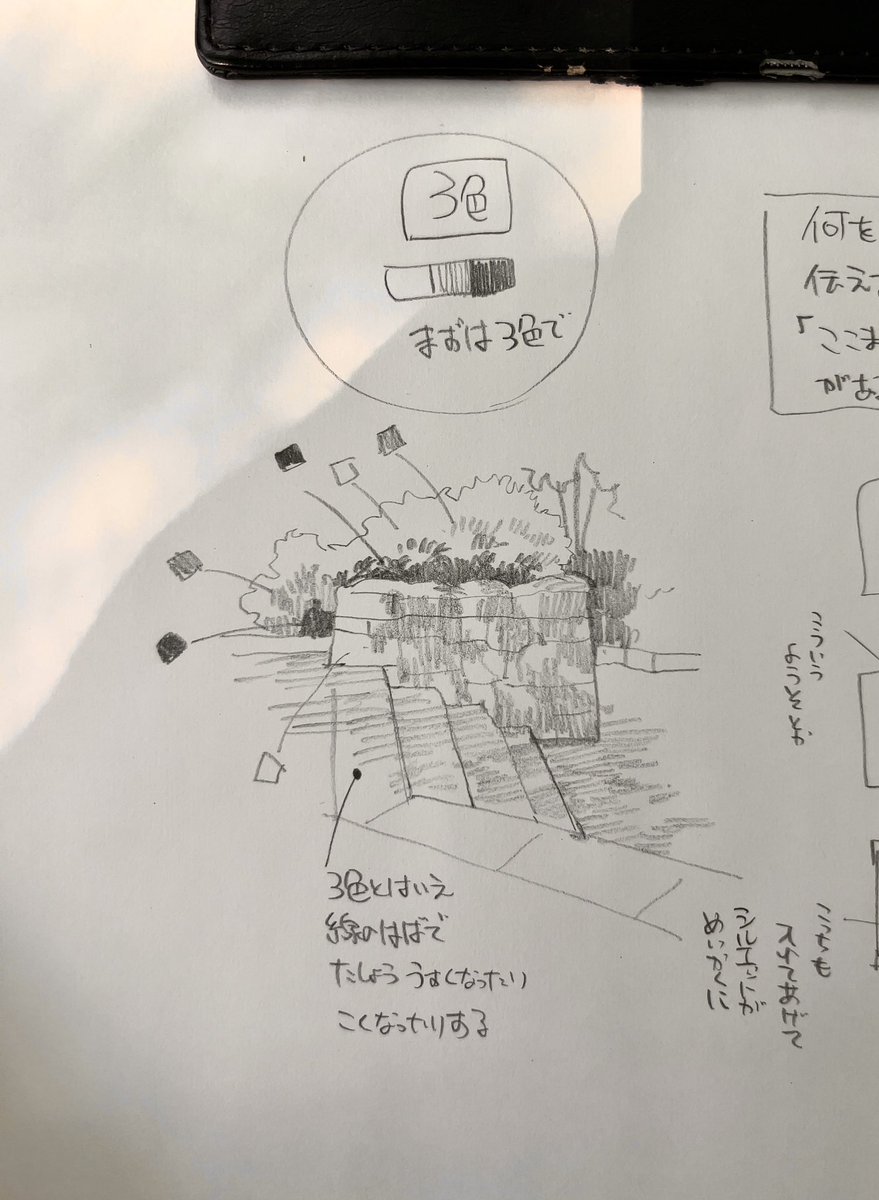 3色
まずは3色で
何を
伝え
「ここま
がある
3色とはいえ
線のはばで
たしょう うすくなったり
こくなったりする
こういう
ようそとか
こっちも
あげて
シルエットが
めいかくに